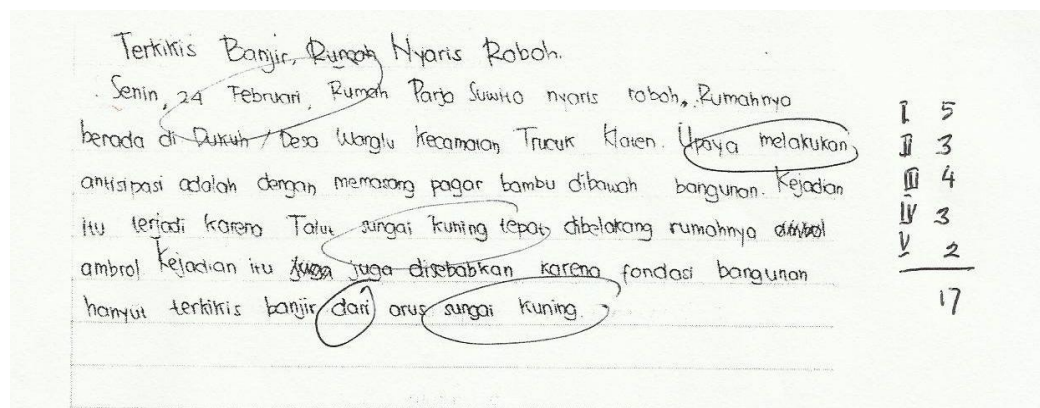 Terkikis Banjir, Rumah Nyaris Roboh.
Senin, 24 Februari, Rumah Parjo Suwito nyaris roboh, Rumahnya
berada di Dukuh / Desa Wanglu Kecamatan Trucuk Klaten. Upaya melakukan
antisipasi adalah dengan memasang pagar bambu dibawah bangunan. Kejadian
itu terjadi karena Talut sungai kuning tepat dibelakang rumahnya ambrol
ambrol Kejadian itu juga juga disebabkan karena fondasi bangunan
hanyut terkikis banjir dari arus sungai kuning.
I 5
II 3
III 4
IV 3
V 2
17